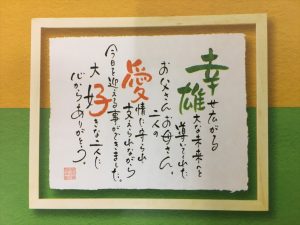 幸せつながる
雄大な未来へと
導いてくれた
お父さんお母さん。
二人の
愛情に守られ
支えられながら
今日を迎える事ができました。
大好きな二人に
心からありがとう。